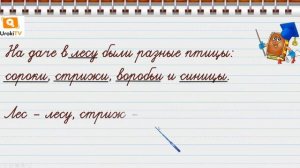 UrokiTV
На даче в лесу были разные птицы:
сороки, стрижи, воробьи и синицы.
Лес – лесу, стриж –